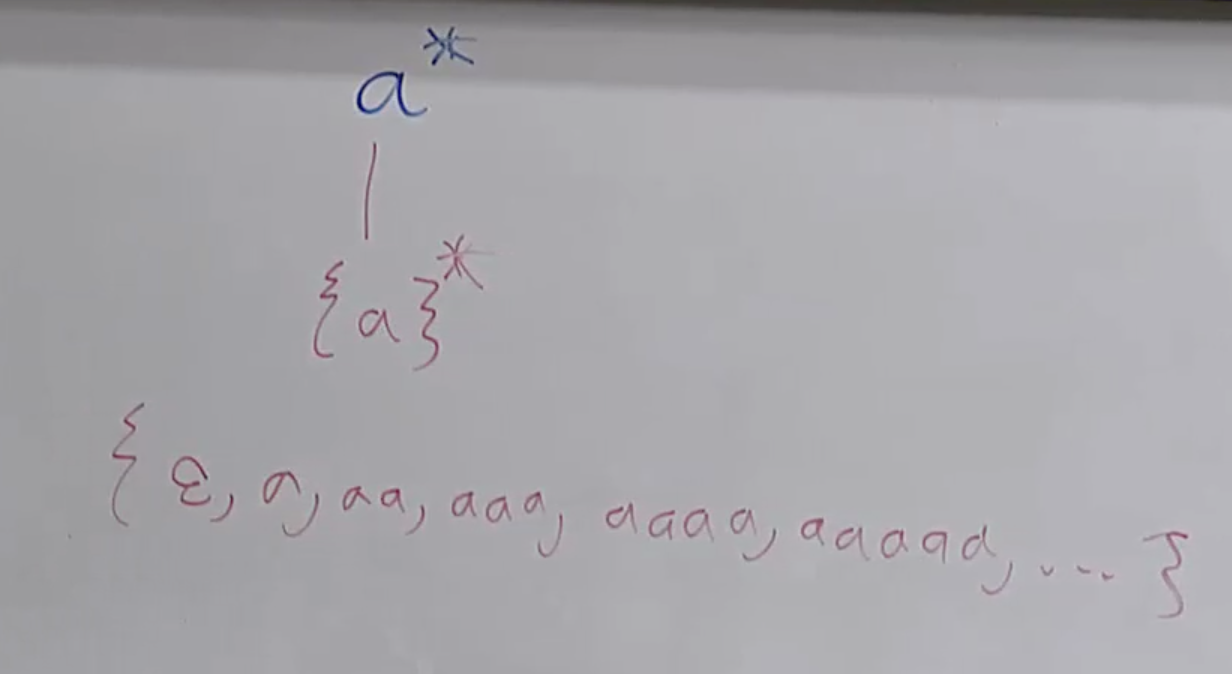 a*
{a}*
{ε, a, aa, aaa, aaaa, aaaaa, ... }